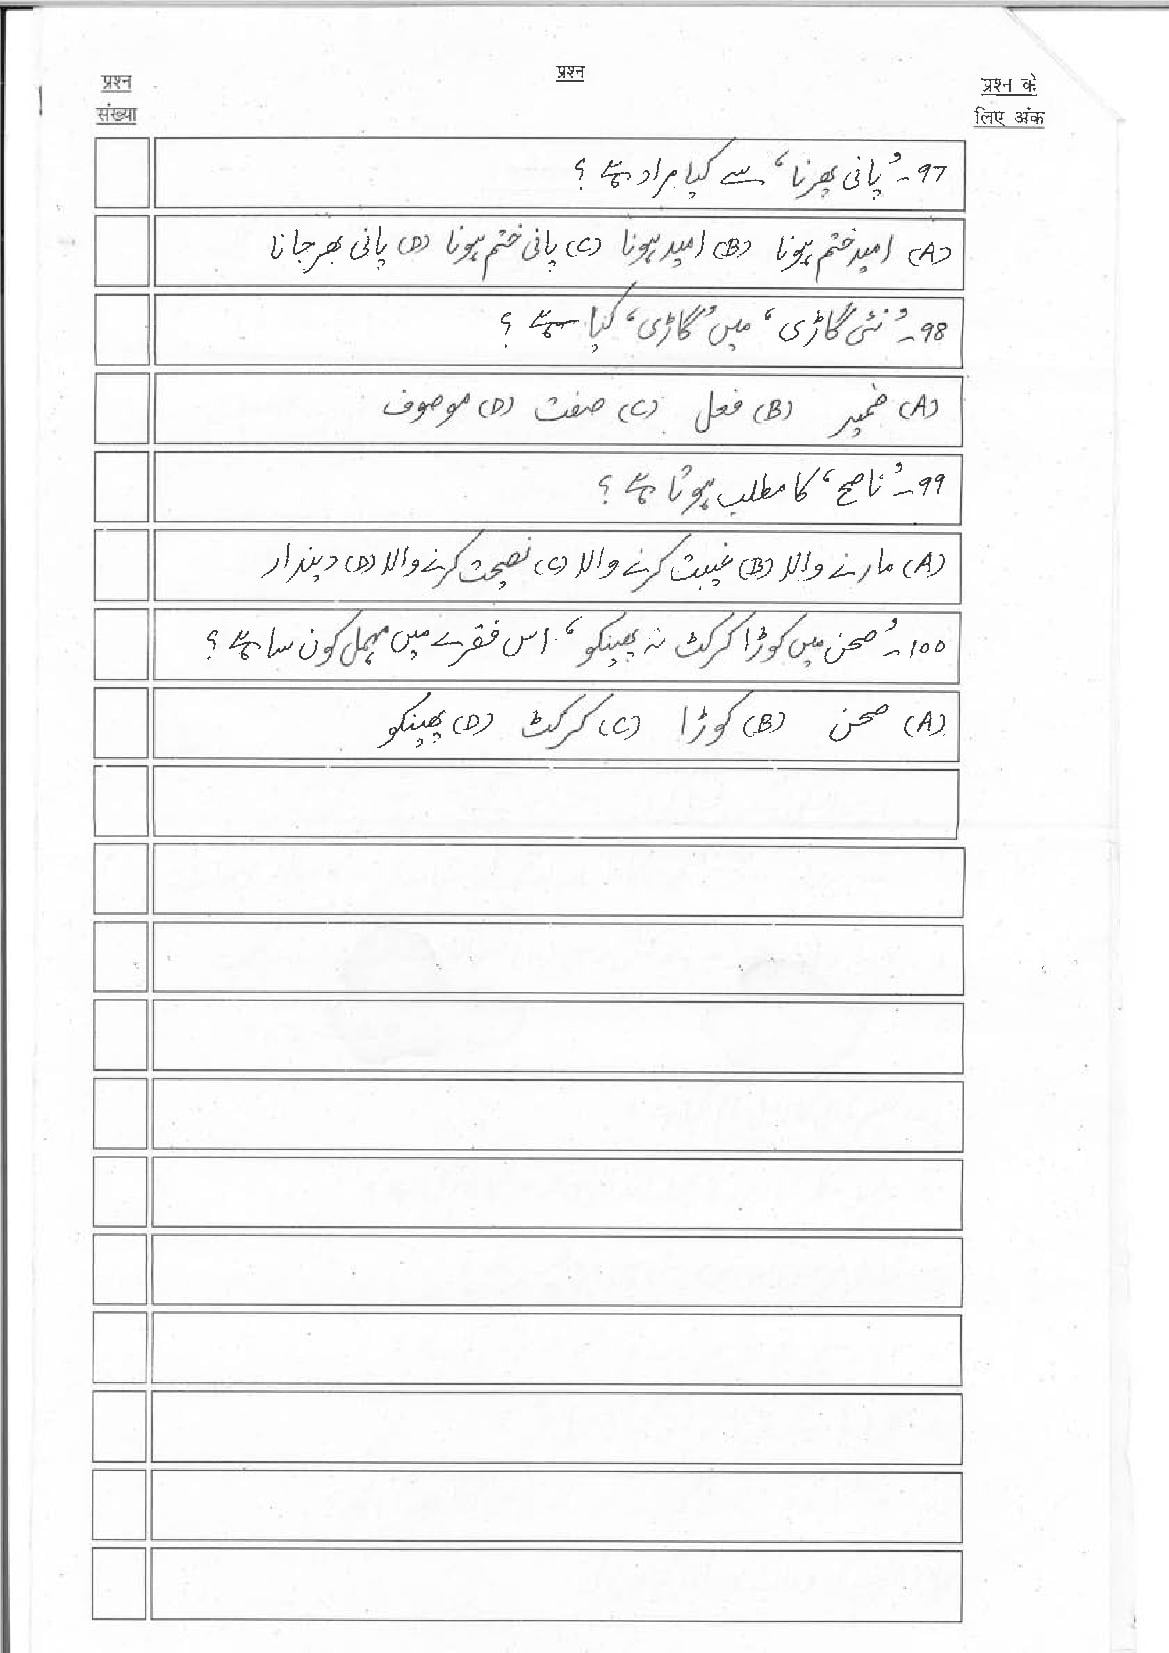 प्रश्न संख्या
प्रश्न
प्रश्न के लिए अंक
97۔ ’پانی پھرنا‘ سے کیا مراد ہے؟
(A) امید ختم ہونا (B) امید ہونا (C) پانی ختم ہونا (D) پانی بھر جانا
98۔ ’نئی گاڑی‘ میں ’گاڑی‘ کیا ہے؟
(A) ضمیر (B) فعل (C) صفت (D) موصوف
99۔ ’ناصح‘ کا مطلب ہوتا ہے؟
(A) مارنے والا (B) غیبت کرنے والا (C) نصیحت کرنے والا (D) دیندار
100۔ ’صحن میں کوڑا کرکٹ نہ پھینکو‘ اس فقرے میں مہمل کون سا ہے؟
(A) صحن (B) کوڑا (C) کرکٹ (D) پھینکو